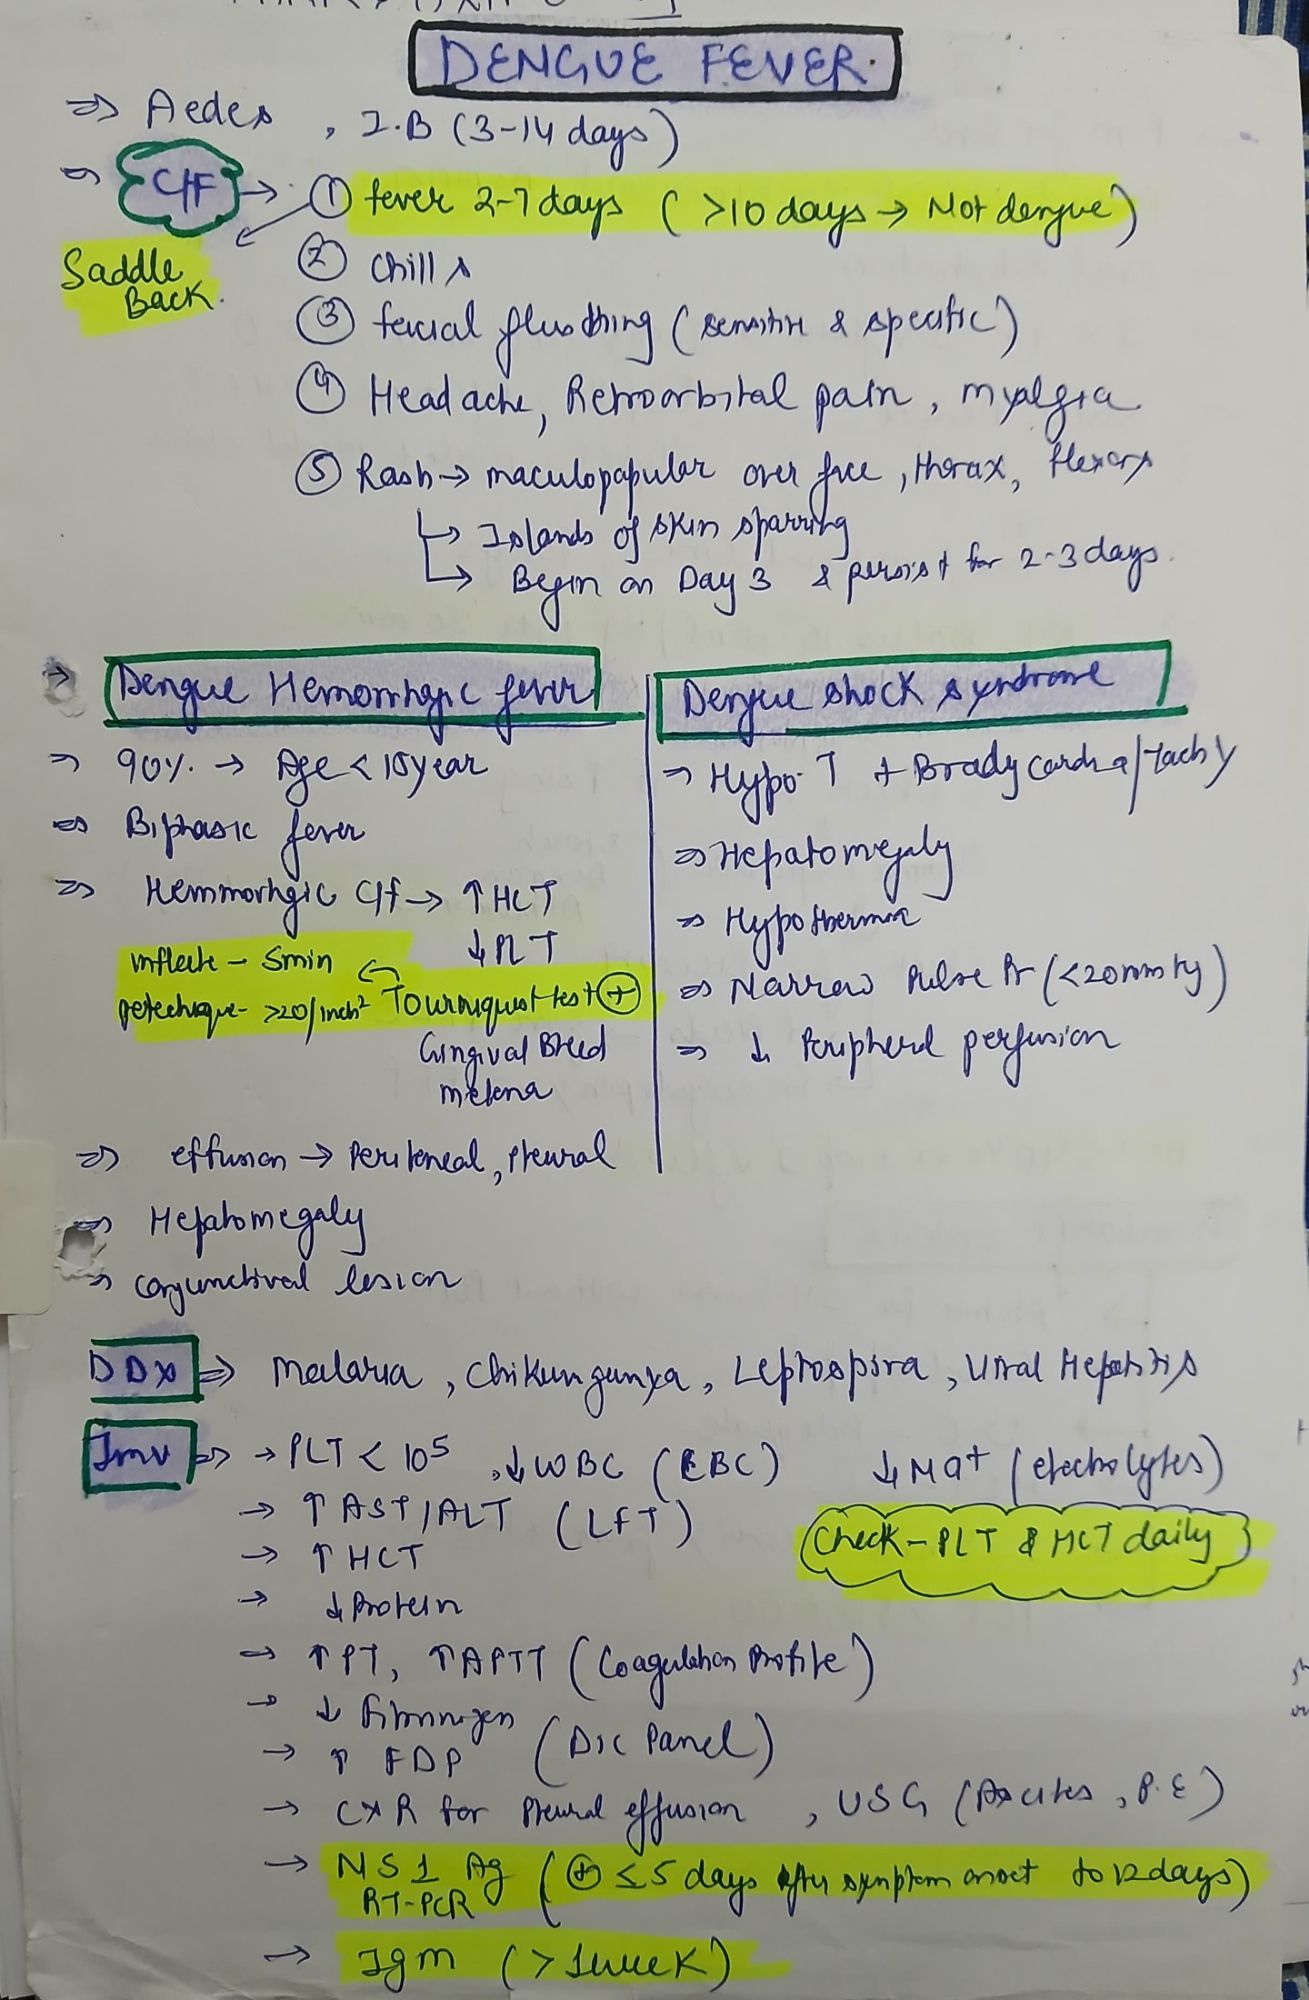 DENGUE FEVER.
⇒ Aedes , I.B (3-14 days)
⇒ C/F → ① fever 2-7 days ( >10 days → Not dengue)
Saddle
Back.
② chills
③ facial flushing (sensitive & specific)
④ Headache, Retroorbital pain, myalgia
⑤ Rash → maculopapular over face, thorax, flexors
↳ Islands of skin sparring
↳ Begin on Day 3 & persist for 2-3 days.
→ Dengue Hemorrhgic fever
⇒ 90%. → Age < 15 year
⇒ Biphasic fever
⇒ Hemmorhgic C/f → ↑ HCT
↓ PLT
Tourniquet test ⊕
inflate - 5min
petechique - >20/inch²
Gingival Bleed
melena
⇒ effusion → Peritoneal, Pleural
⇒ Hepatomegaly
⇒ conjunctival lesion
Dengue shock syndrome
⇒ Hypo-T + Bradycardia/Tachy
⇒ Hepatomegaly
⇒ Hypothermia
⇒ Narrow Pulse Pr (<20mmHg)
⇒ ↓ Peripheral perfusion
DDx ⇒ Malaria, Chikungunya, Leptospira, Viral Hepatitis
Inv ⇒ → PLT < 10⁵ , ↓ WBC (CBC) ↓ Na+ (electrolytes)
→ ↑ AST/ALT (LFT)
Check - PLT & HCT daily
→ ↑ HCT
→ ↓ Protein
→ ↑ PT, ↑ APTT (Coagulation Profile)
→ ↓ Fibrinogen
→ ↑ FDP (DIC Panel)
→ CXR for Pleural effusion , USG (Ascites, P.E)
→ NS1 Ag (⊕ ≤5 days after symptom onset to 12 days)
RT-PCR
→ IgM (> 1 week)